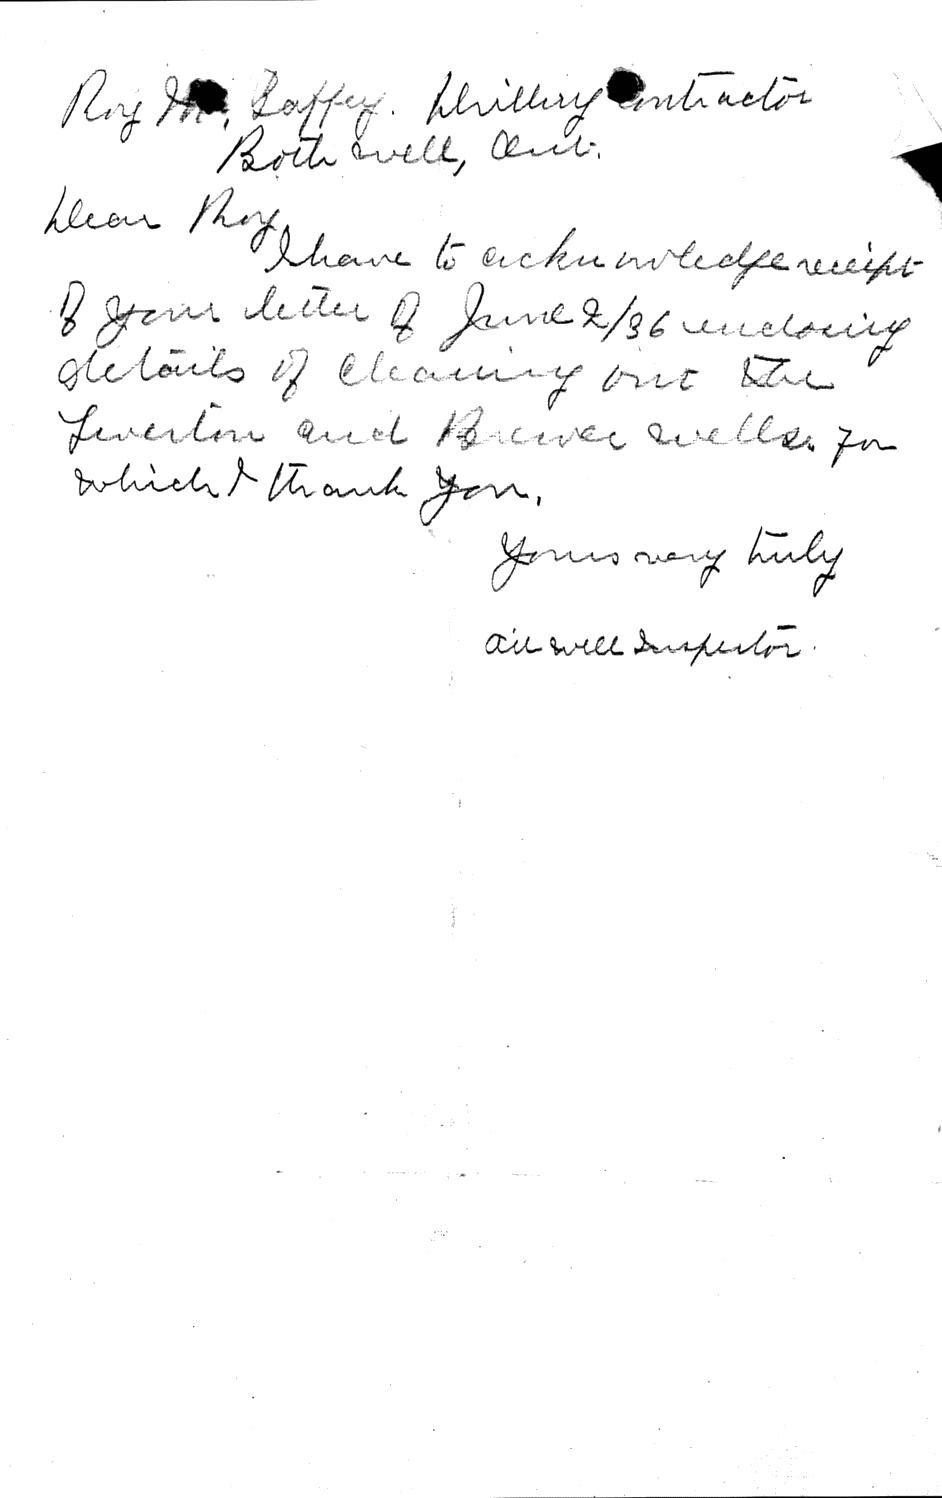 Roy M. Laffey. Drilling Contractor
Bothwell, Ont.
Dear Roy,
I have to acknowledge receipt
of your letter of June 2/36 enclosing
details of cleaning out the
Leverton and Brewer wells. for
which I thank you.
Yours very truly
Oil well Inspector.